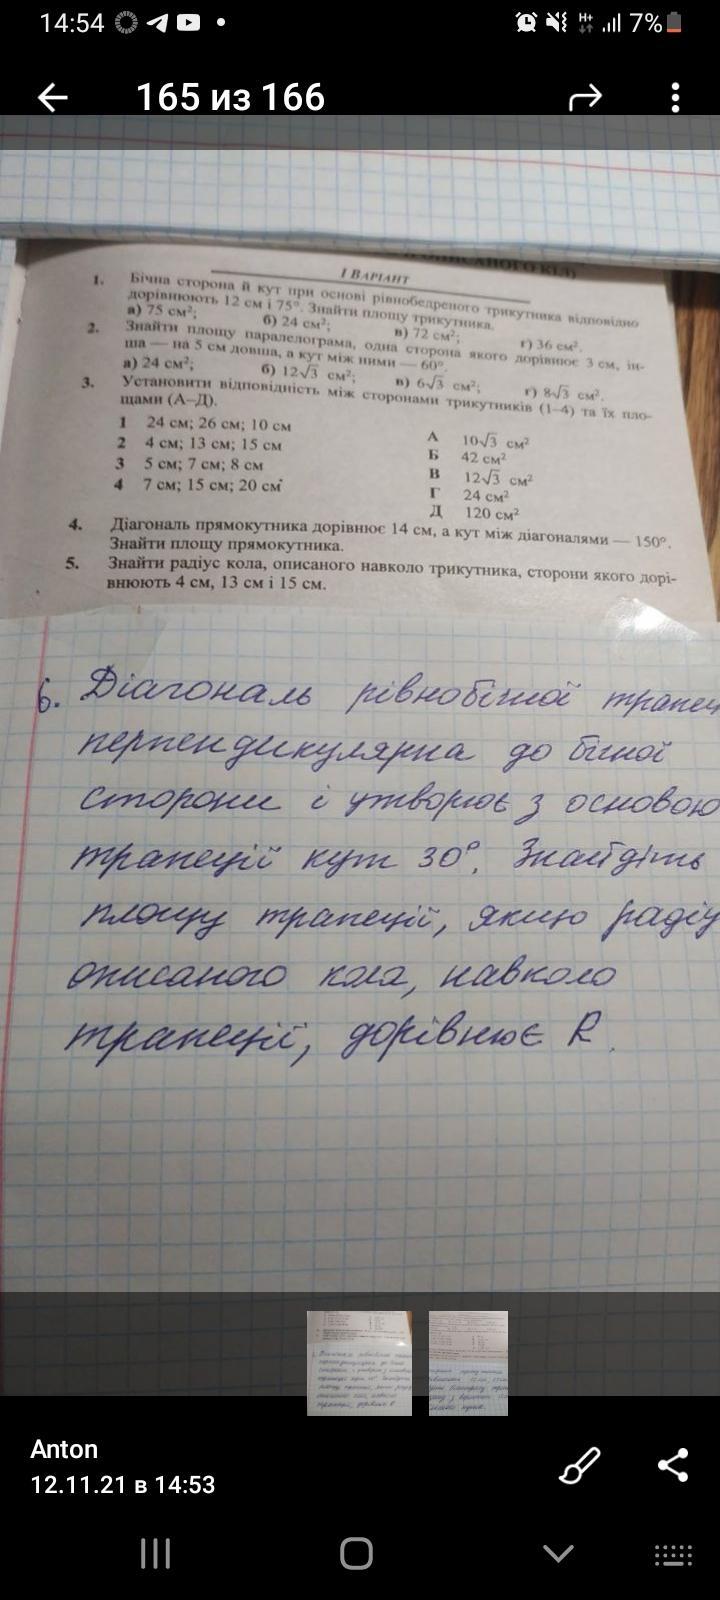 14:54
H+
7%
165 из 166
І ВАРІАНТ
1. Бічна сторона й кут при основі рівнобедреного трикутника відповідно
дорівнюють 12 см і 75°. Знайти площу трикутника.
а) 75 см²; б) 24 см²; в) 72 см²; г) 36 см².
2. Знайти площу паралелограма, одна сторона якого дорівнює 3 см, ін-
ша — на 5 см довша, а кут між ними — 60°.
а) 24 см²; б) 12√3 см²; в) 6√3 см²; г) 8√3 см².
3. Установити відповідність між сторонами трикутників (1–4) та їх пло-
щами (А–Д).
1 24 см; 26 см; 10 см
2 4 см; 13 см; 15 см
3 5 см; 7 см; 8 см
4 7 см; 15 см; 20 см
А 10√3 см²
Б 42 см²
В 12√3 см²
Г 24 см²
Д 120 см²
4. Діагональ прямокутника дорівнює 14 см, а кут між діагоналями — 150°.
Знайти площу прямокутника.
5. Знайти радіус кола, описаного навколо трикутника, сторони якого дорі-
внюють 4 см, 13 см і 15 см.
6. Діагональ рівнобічної трапец
перпендикулярна до бічної
сторони і утворює з основою
трапеції кут 30°. Знайдіть
площу трапеції, якщо радіу
описаного кола, навколо
трапеції, дорівнює R.
Anton
12.11.21 в 14:53